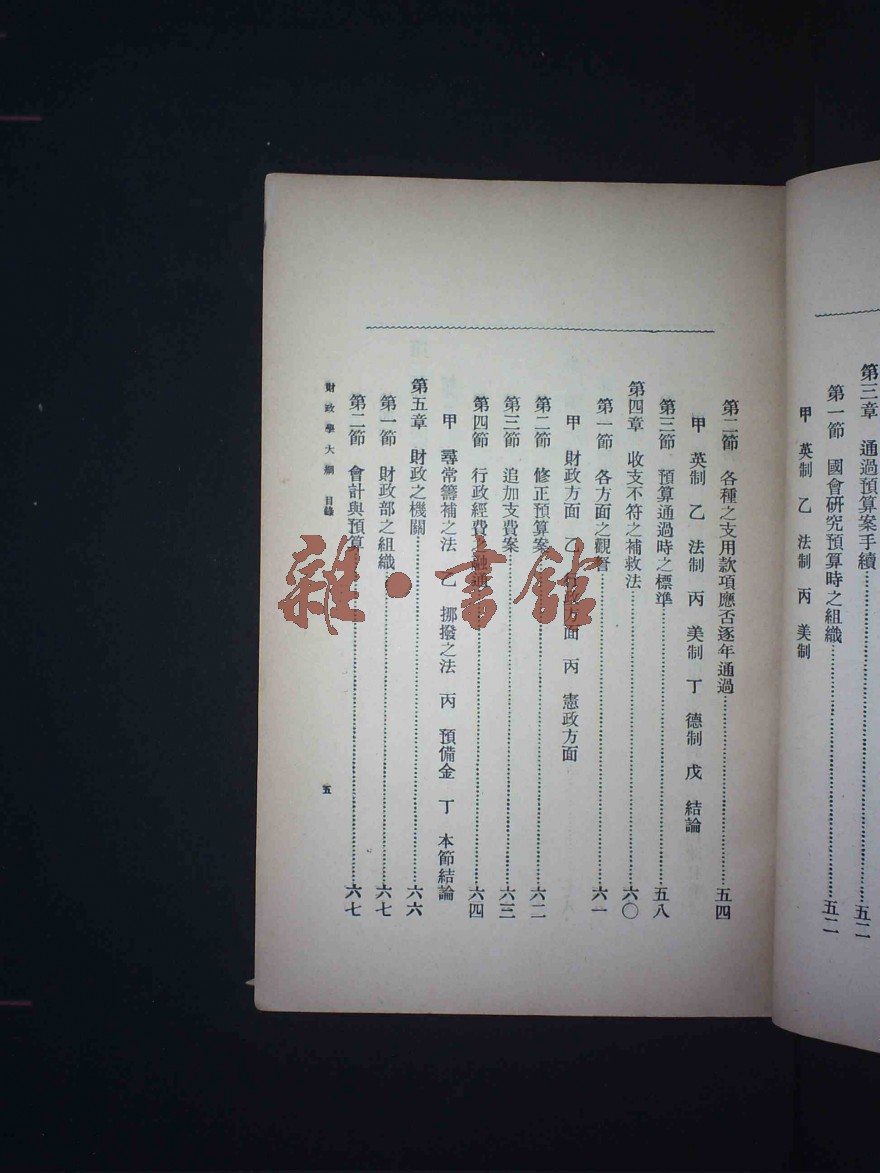 第三章 通過預算案手續……五二
第一節 國會研究預算時之組織……五二
甲 英制 乙 法制 丙 美制
第二節 各種之支用款項應否逐年通過……五四
甲 英制 乙 法制 丙 美制 丁 德制 戊 結論
第三節 預算通過時之標準……五八
第四章 收支不符之補救法……六〇
第一節 各方面之觀察……六一
甲 財政方面 乙 行政方面 丙 憲政方面
第二節 修正預算案……六二
第三節 追加支費案……六三
第四節 行政經費之融通……六四
甲 尋常籌補之法 乙 挪撥之法 丙 預備金 丁 本節結論
第五章 財政之機關……六六
第一節 財政部之組織……六七
第二節 會計與預算……六七
財政學大綱 目錄
五
雜·書館